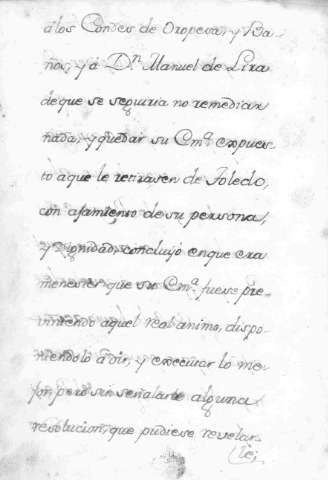 a los Condes de Oropesa, y Ba-
ños, y á D.ⁿ Manuel de Lira
de que se seguiria no remediar
nada, y quedar su Em.ª expues-
to a que le retirasen de Toledo,
con ajamiento de su persona,
y Dignidad, concluyo en que era
menester que su Em.ª fuese pre-
viniendo aquel real animo, dispo-
niendolo á oir, y executar lo me-
jor pero sin señalarle alguna
resolucion, que pudiese revelar